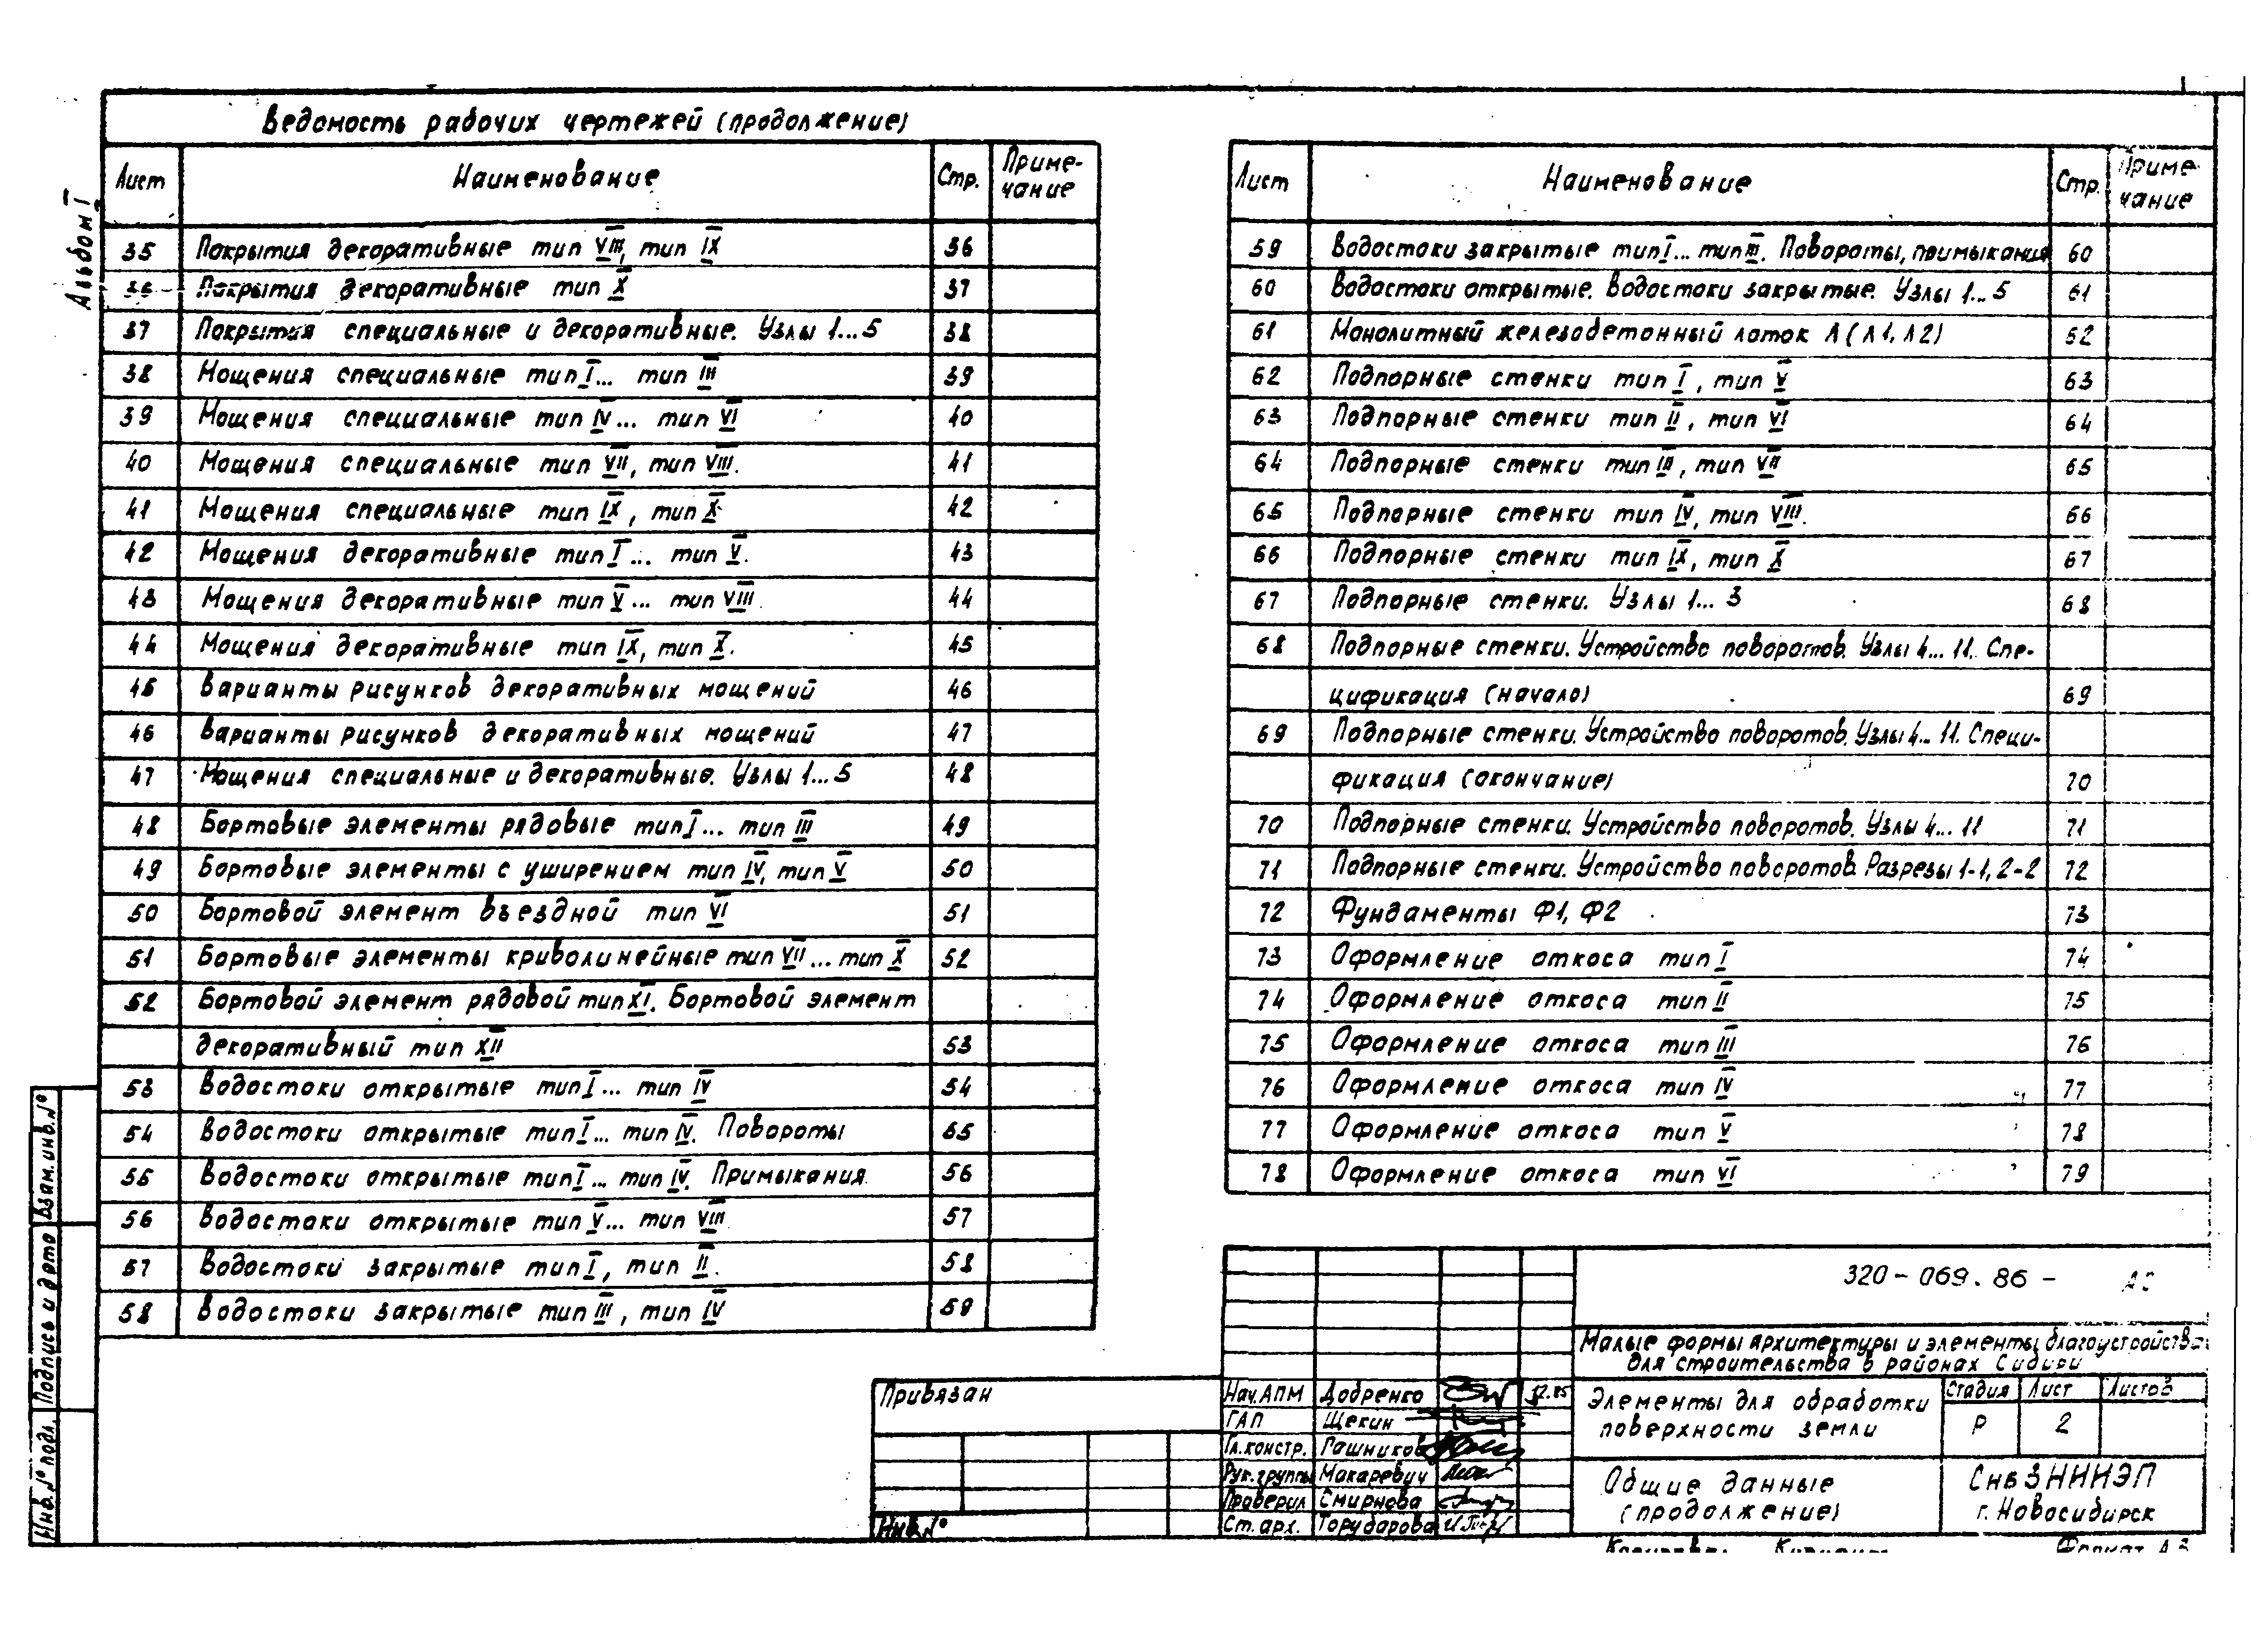 Альбом I
Ведомость рабочих чертежей (продолжение)
Лист Наименование Стр. Приме-
чание
35 Покрытия декоративные тип VIII, тип IX 36
36 Покрытия декоративные тип X 37
37 Покрытия специальные и декоративные. Узлы 1...5 38
38 Мощения специальные тип I... тип III 39
39 Мощения специальные тип IV... тип VI 40
40 Мощения специальные тип VII, тип VIII. 41
41 Мощения специальные тип IX, тип X 42
42 Мощения декоративные тип I... тип V. 43
43 Мощения декоративные тип V... тип VIII 44
44 Мощения декоративные тип IX, тип X. 45
45 Варианты рисунков декоративных мощений 46
46 Варианты рисунков декоративных мощений 47
47 Мощения специальные и декоративные. Узлы 1...5 48
48 Бортовые элементы рядовые тип I... тип III 49
49 Бортовые элементы с уширением тип IV, тип V 50
50 Бортовой элемент въездной тип VI 51
51 Бортовые элементы криволинейные тип VII... тип X 52
52 Бортовой элемент рядовой тип XI. Бортовой элемент
декоративный тип XII 53
53 Водостоки открытые тип I... тип IV 54
54 Водостоки открытые тип I... тип IV. Повороты 55
55 Водостоки открытые тип I... тип IV. Примыкания 56
56 Водостоки открытые тип V... тип VIII 57
57 Водостоки закрытые тип I, тип II. 58
58 Водостоки закрытые тип III, тип IV 59
Лист Наименование Стр. Приме-
чание
59 Водостоки закрытые тип I... тип III. Повороты, примыкания 60
60 Водостоки открытые. Водостоки закрытые. Узлы 1...5 61
61 Монолитный железобетонный лоток Л (Л1, Л2) 62
62 Подпорные стенки тип I, тип V 63
63 Подпорные стенки тип II, тип VI 64
64 Подпорные стенки тип III, тип VII 65
65 Подпорные стенки тип IV, тип VIII. 66
66 Подпорные стенки тип IX, тип X 67
67 Подпорные стенки. Узлы 1...3 68
68 Подпорные стенки. Устройство поворотов. Узлы 4...11. Спе-
цификация (начало) 69
69 Подпорные стенки. Устройство поворотов. Узлы 4...11. Специ-
фикация (окончание) 70
70 Подпорные стенки. Устройство поворотов. Узлы 4...11 71
71 Подпорные стенки. Устройство поворотов. Разрезы 1-1, 2-2 72
72 Фундаменты Ф1, Ф2 73
73 Оформление откоса тип I 74
74 Оформление откоса тип II 75
75 Оформление откоса тип III 76
76 Оформление откоса тип IV 77
77 Оформление откоса тип V 78
78 Оформление откоса тип VI 79
Взам. инв. №
Подпись и дата
Инв. № подл.
Привязан
Инв. №
320-069.86-
Малые формы архитектуры и элементы благоустройства
для строительства в районах Сибири
Нач. АПМ Добренко 12.85
ГАП Щекин
Гл. констр. Гашников
Рук. группы Макаревич
Проверил Смирнова
Ст. арх. Торударова
Элементы для обработки
поверхности земли
Стадия Лист Листов
Р 2
Общие данные
(продолжение)
СибЗНИИЭП
г. Новосибирск
Формат А3